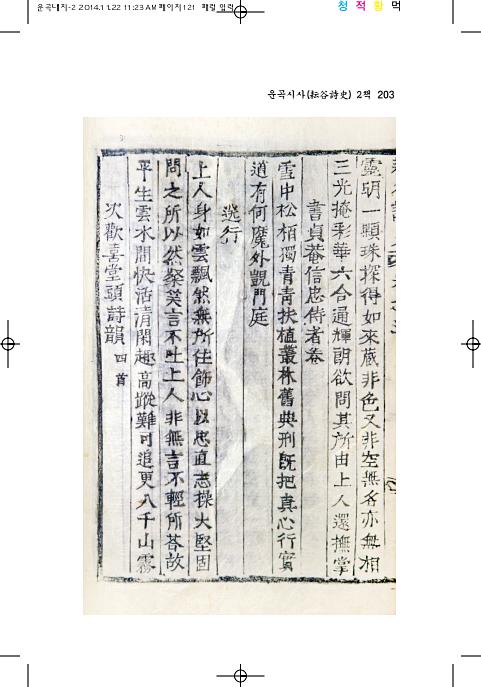 운곡내지-2 2014.11.22 11:23 AM 페이지121
청 적 황 먹
운곡시사(耘谷詩史) 2책 203
靈明一顆珠探得如來藏非色又非空無名亦無相
三光掩彩華六合通輝朗欲問其所由上人還撫掌
書貞菴信忠侍者卷
雪中松栢獨青青扶植叢林舊典刑旣把真心行實
道有何魔外覬門庭
送行
上人身如雲飄然無所住飾心以忠直志操大堅固
問之所以然粲笑言不吐上人非無言不輕所答故
平生雲水間快活清閑趣高蹤難可追更入千山霧
次歡喜堂頭詩韻 四首